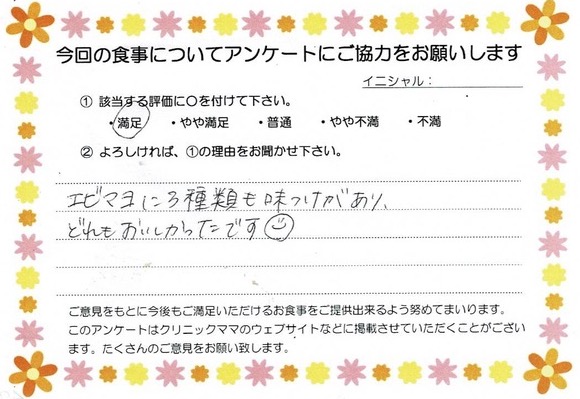 今回の食事についてアンケートにご協力をお願いします
イニシャル：
① 該当する評価に○を付けて下さい。
・満足 ・やや満足 ・普通 ・やや不満 ・不満
② よろしければ、①の理由をお聞かせ下さい。
エビマヨに3種類も味つけがあり、
どれもおいしかったです
ご意見をもとに今後もご満足いただけるお食事をご提供出来るよう努めてまいります。
このアンケートはクリニックママのウェブサイトなどに掲載させていただくことがござい
ます。たくさんのご意見をお願い致します。